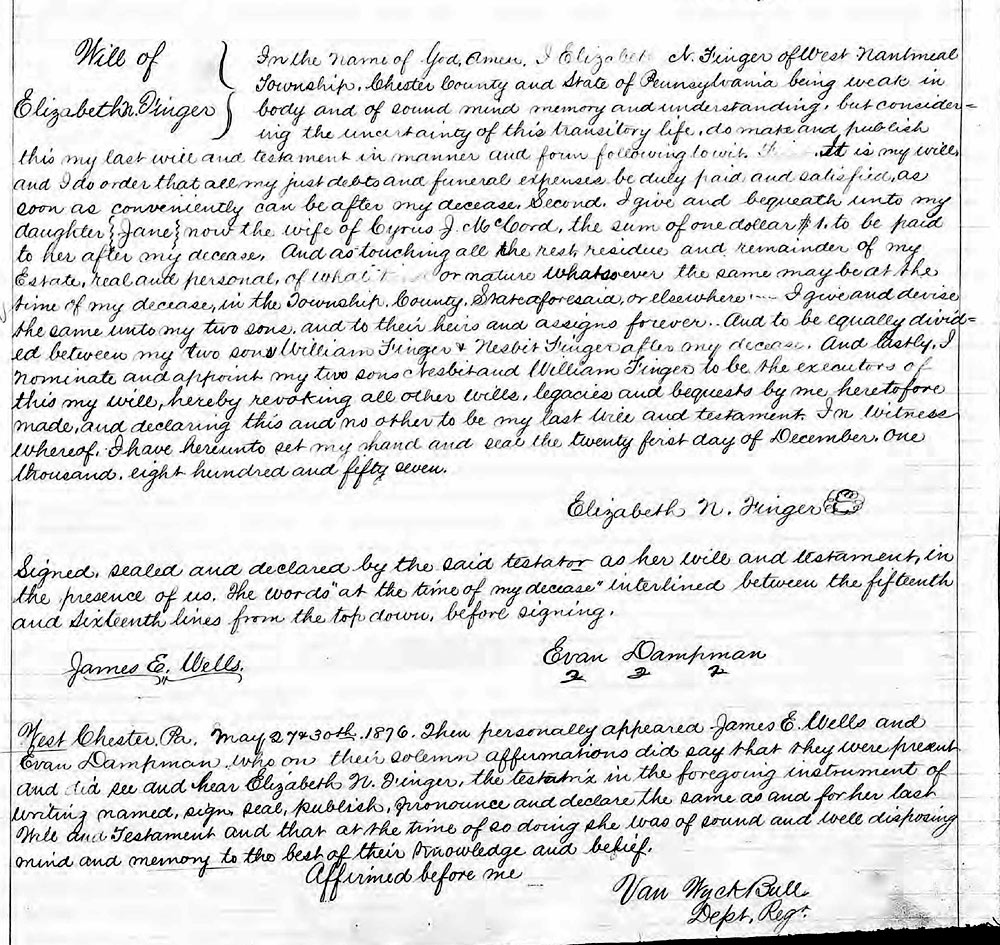 Will of
Elizabeth N. Finger
In the name of God, Amen, I Elizabeth N. Finger of West Nantmeal
Township, Chester County and State of Pennsylvania being weak in
body and of sound mind memory and understanding, but consider=
ing the uncertainty of this transitory life, do make and publish
this my last will and testament in manner and form following to wit. It is my will,
and I do order that all my just debts and funeral expenses be duly paid and satisfied, as
soon as conveniently can be after my decease, Second. I give and bequeath unto my
daughter {Jane} now the wife of Cyrus J. McCord, the sum of one dollar $1. to be paid
to her after my decease. And as touching all the rest, residue and remainder of my
Estate, real and personal, of what or nature whatsoever the same may be at the
time of my decease, in the Township, County, State aforesaid, or elsewhere ---- I give and devise
the same unto my two sons, and to their heirs and assigns forever.. And to be equally divid=
ed between my two sons William Finger & Nesbit Finger after my decease. And lastly, I
nominate and appoint my two sons Nesbit and William Finger to be the executors of
this my will, hereby revoking all other wills, legacies and bequests by me heretofore
made, and declaring this and no other to be my last will and testament. In witness
whereof, I have hereunto set my hand and seal the twenty first day of December, One
thousand, eight hundred and fifty seven.
Elizabeth N. Finger
Signed, sealed and declared by the said testator as her will and testament, in
the presence of us. The words "at the time of my decease" interlined between the fifteenth
and sixteenth lines from the top down, before signing.
James E. Wells.
Evan Dampman
West Chester, Pa. May 27 & 30th. 1876. Then personally appeared James E. Wells and
Evan Dampman who on their solemn affirmations did say that they were present
and did see and hear Elizabeth N. Finger, the testatrix in the foregoing instrument of
writing named, sign, seal, publish, pronounce and declare the same as and for her last
Will and Testament and that at the time of so doing she was of sound and well disposing
mind and memory to the best of their knowledge and belief.
Affirmed before me
Van Wyck Bull
Dept. Regr.